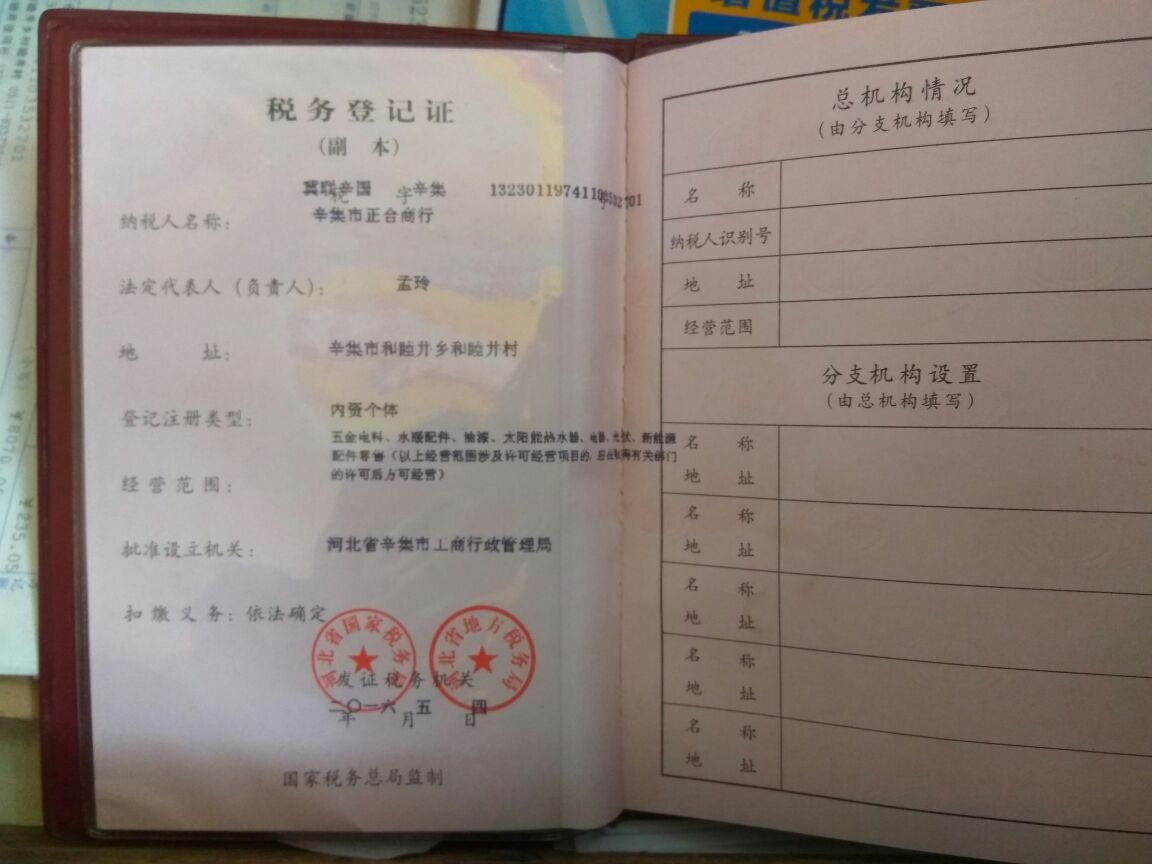 税务登记证
(副 本)
冀联辛国税 字 辛集
纳税人名称: 辛集市正合商行
法定代表人(负责人): 孟玲
地 址: 辛集市和睦井乡和睦井村
登记注册类型: 内资个体
五金电料、水暖配件、油漆、太阳能热水器、电器、光伏、新能源
配件零售(以上经营范围涉及许可经营项目的,应在取得有关部门
的许可后方可经营)
经营范围:
批准设立机关: 河北省辛集市工商行政管理局
扣缴义务: 依法确定
河北省国家税务局
河北省地方税务局
发证税务机关
二〇一六年 五月 四日
国家税务总局监制
总机构情况
(由分支机构填写)
名 称
纳税人识别号
地 址
经营范围
分支机构设置
(由总机构填写)
名 称
地 址
名 称
地 址
名 称
地 址
名 称
地 址
名 称
地 址